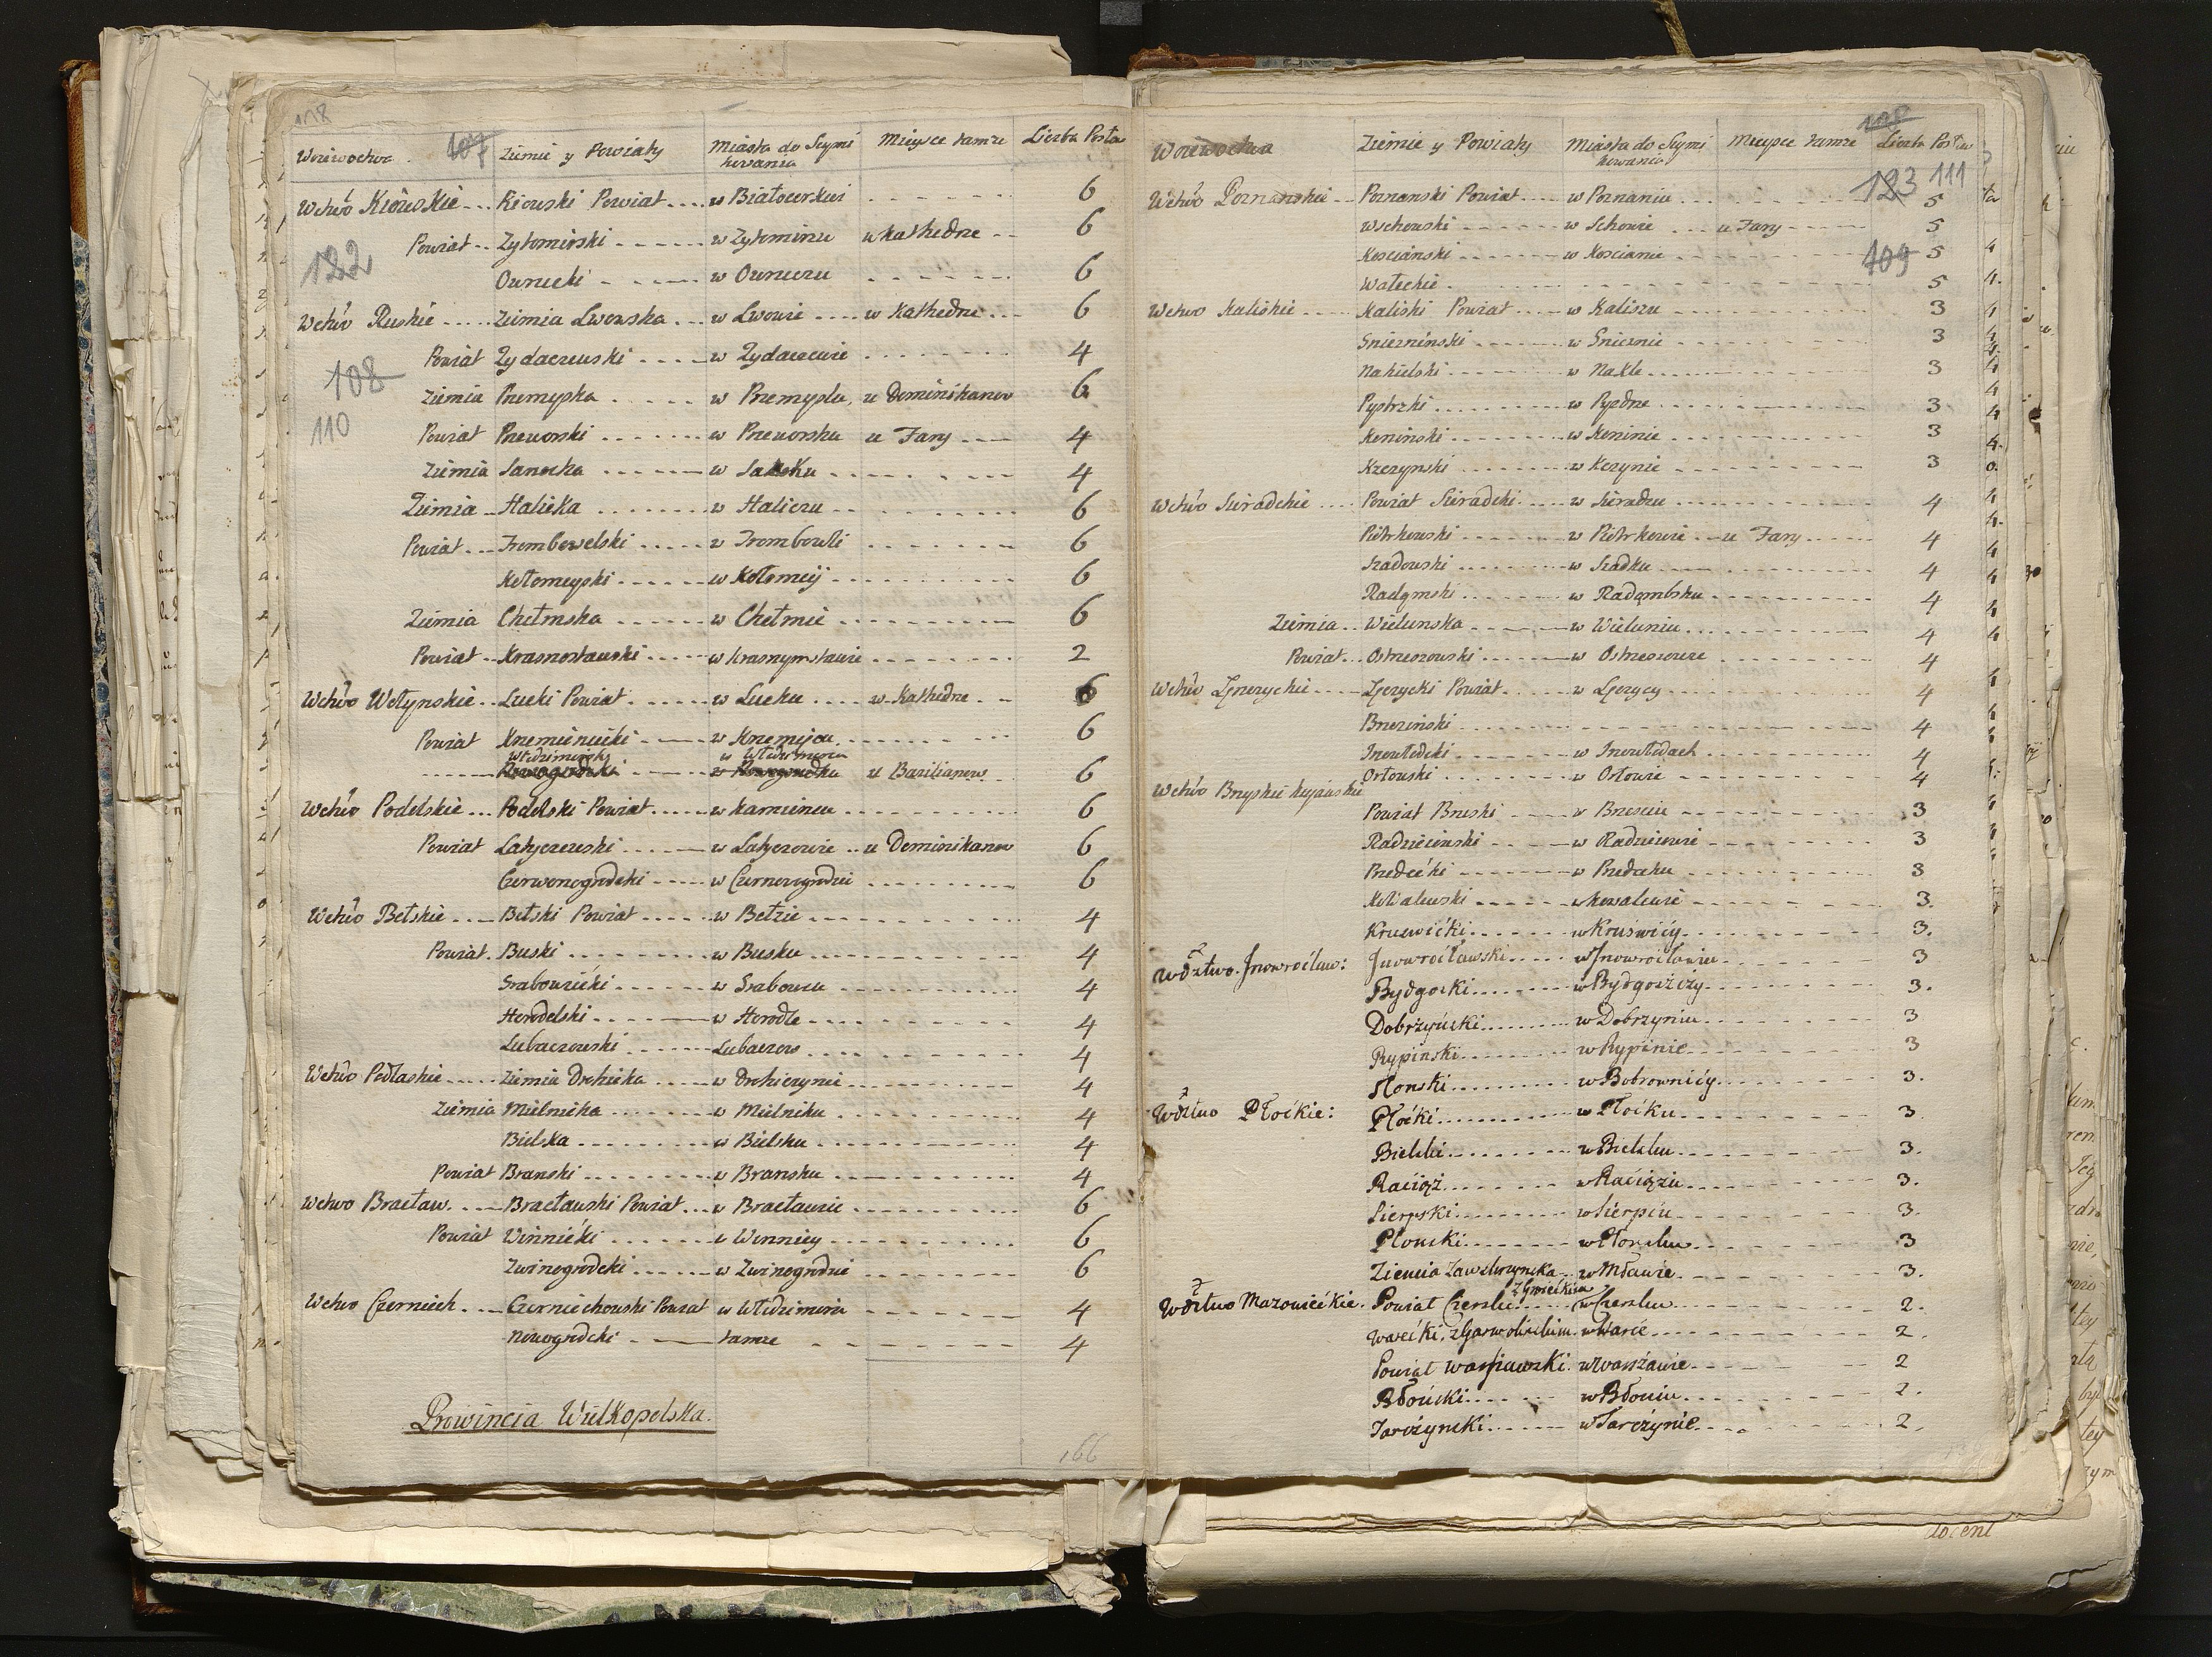 108
Woiewodztwa 107 Ziemie y Powiaty Miasta do Seymi Mieysce tamze Liczba Posłow
kowania
Wctwo Kiowskie Kiowski Powiat w Białocerkwi 6
Powiat Zytomirski w Zytomirzu w Kathedrze 6
122
Owrucki w Owruczu 6
Wctwo Ruskie Ziemia Lwowska w Lwowie w Kathedrze 6
Powiat Zydaczewski w Zydaczewie 4
108
Ziemia Przemyska w Przemyslu u Dominikanow 6
110
Powiat Przeworski w Przeworsku u Fary 4
Ziemia Sanocka w Sanoku 4
Ziemia Halicka w Haliczu 6
Powiat Trembowelski w Trembowli 6
Kołomeyski w Kołomeij 6
Ziemia Chełmska w Chełmie 6
Powiat Krasnostawski w Krasnymstawie 2
Wctwo Wołynskie Lucki Powiat w Lucku w Kathedrze 6
Powiat Krzemieniecki w Krzemieńcu 6
Włodzimirski w Włodzimirzu
Nowogrodzki w Nowogrodku u Bazilianow 6
Wctwo Podolskie Podolski Powiat w Kamieńcu 6
Powiat Latyczewski w Latyczowie u Dominikanow 6
Czerwonogrodzki w Czerwonogrodzie 6
Wctwo Bełskie Bełski Powiat w Bełzie 4
Powiat Buski w Busku 4
Grabowiecki w Grabowcu 4
Horodelski w Horodle 4
Lubaczowski Lubaczow 4
Wctwo Podlaskie Ziemia Drohicka w Drohiczynie 4
Ziemia Mielnicka w Mielniku 4
Bielska w Bielsku 4
Powiat Branski w Bransku 4
Wctwo Bracław. Bracławski Powiat w Bracławie 6
Powiat Winnicki w Winnicy 6
Zwinogrodzki w Zwinogrodzie 6
Wctwo Czerniech. Czerniechowski Powiat w Włodzimirzu 4
Nowogrodzki tamze 4
Prowincia Wielkopolska.
166
Woiewodztwa Ziemie y Powiaty Miasta do Seymi Mieysce tamze Liczba Posłow
kowania
123 111
Wctwo Poznanskie Poznanski Powiat w Poznaniu 5
Wschowski w Schowie u Fary 5
Kosciański w Koscianie 109 5
Wałeckie 5
Wctwo Kaliskie Kaliski Powiat w Kaliszu 3
Gnieznínski w Gnieznie 3
Nakielski w Nakle 3
Pyzdrski w Pyzdrze 3
Koniński w Koninie 3
Kcezynski w Kczynie 3
Wctwo Sieradzkie Powiat Sieradzki w Sieradzu 4
Piotrkowski w Piotrkowie u Fary 4
Szadowski w Szadku 4
Radomski w Radomsku 4
Ziemia Wielunska w Wieluniu 4
Powiat Ostrzeszowski w Ostrzeszowie 4
Wctwo Łęczyckie Łęczycki Powiat w Łęczycy 4
Brzezinski 4
Inowłodzki w Inowłodzach 4
Orłowski w Orłowie 4
Wctwo Brzyskie Kujawskie
Powiat Brzeski w Brzesciu 3
Radzieiewski w Radzieiewie 3
Przedecki w Przedeczu 3
Kowalewski w Kowalewie 3.
Kruswicki w Kruświcy 3.
Wdztwo. Jnowrocław: Jnowrocławski w Jnowrocławiu 3
Bydgoski w Bydgoszczy 3.
Dobrzyński w Dobrzyniu 3
Rypinski w Rypinie 3
Słonski w Bobrownicy 3.
Wdztwo Płockie: Płocki w Płocku 3
Bielski w Bielsku 3.
Raciąż w Raciążu 3.
Sierpski w Sierpcu 3.
Płonski w Płonsku 3
Ziemia Zawskrzynska w Mławie 3.
Wdztwo Mazowieckie. Powiat Czerski w Czersku 2.
Warecki, z Garwolinskim w Warce 2.
Powiat Warszawski w Warszawie 2
Błoński w Błoniu 2.
Tarczynski w Tarczynie 2.